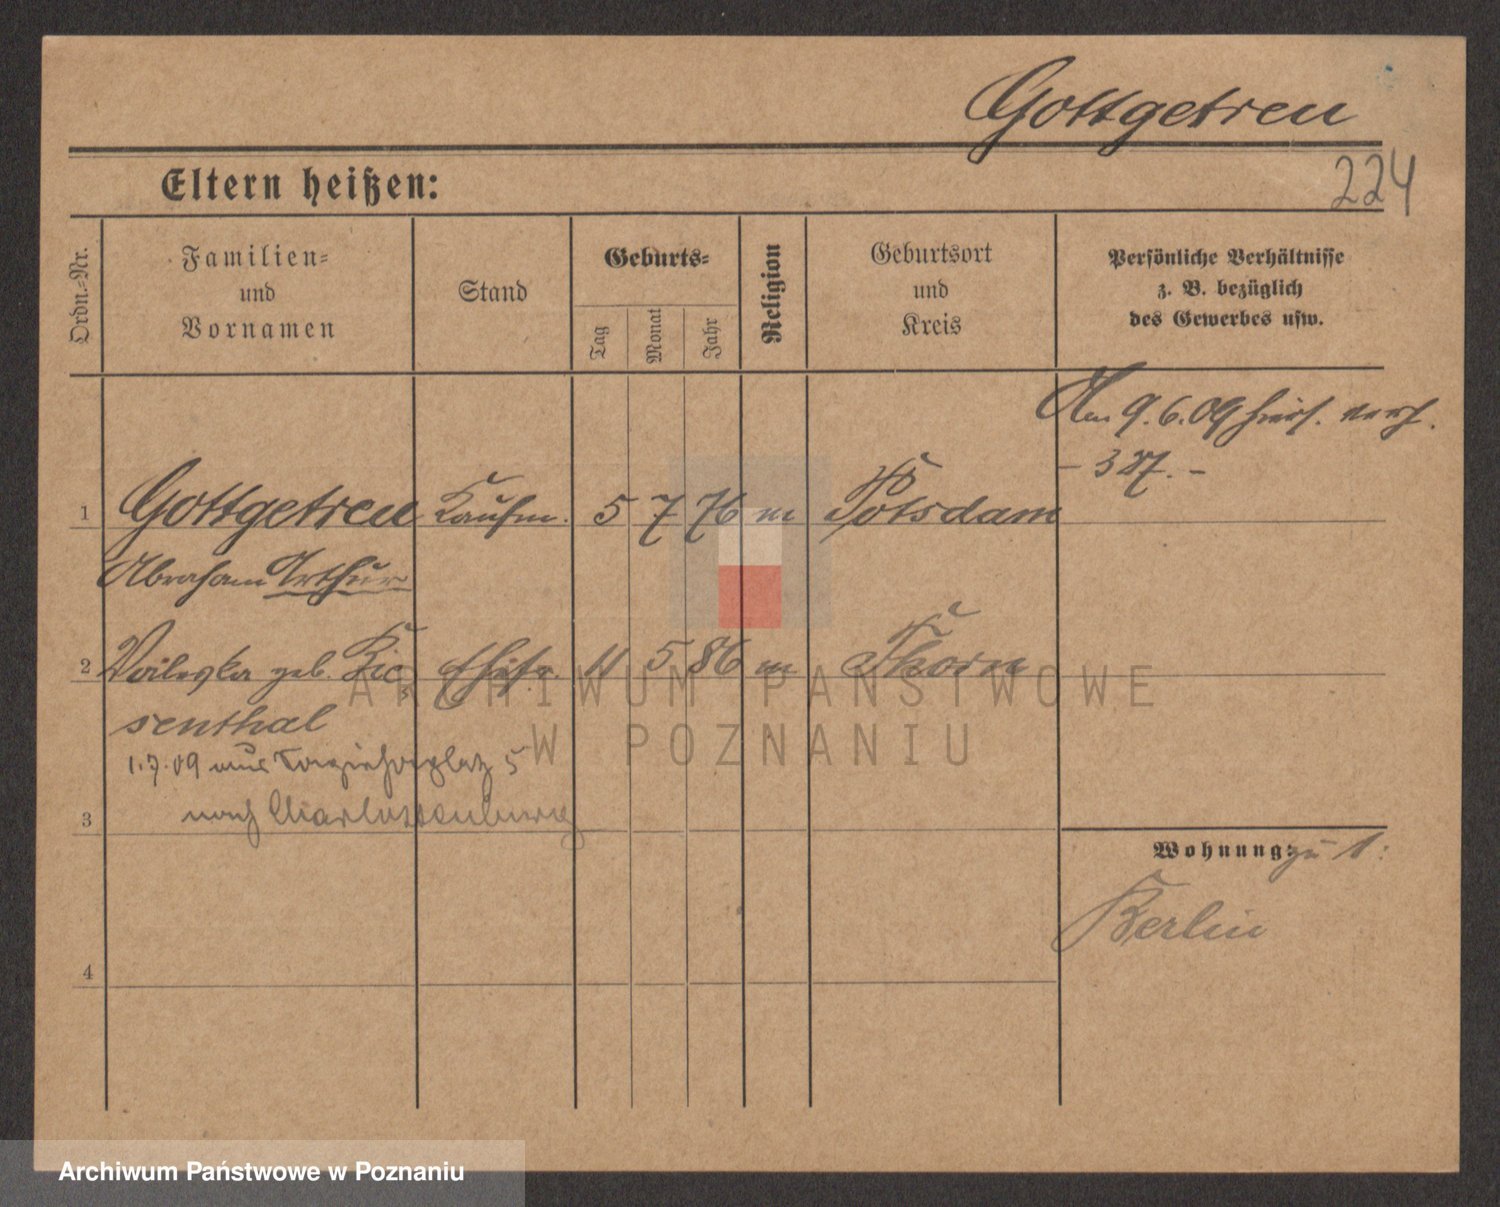 Gottgetreu
224
Eltern heißen:
Ordn.-Nr.
Familien-
und
Vornamen
Stand
Geburts-
Tag
Monat
Jahr
Religion
Geburtsort
und
Kreis
Persönliche Verhältnisse
z. B. bezüglich
des Gewerbes usw.
Am 9.6.09 hies. verh.
- 327. -
1 Gottgetreu Kaufm. 5 7 76 m Potsdam
Abraham Arthur
2 geb. Rie Ehefr. 11 5 86 m Thorn
senthal
1.7.09 aus 5
nach Charlottenburg
3
Wohnung: zu 1:
Berlin
4
ARCHIWUM PAŃSTWOWE
W POZNANIU
Archiwum Państwowe w Poznaniu